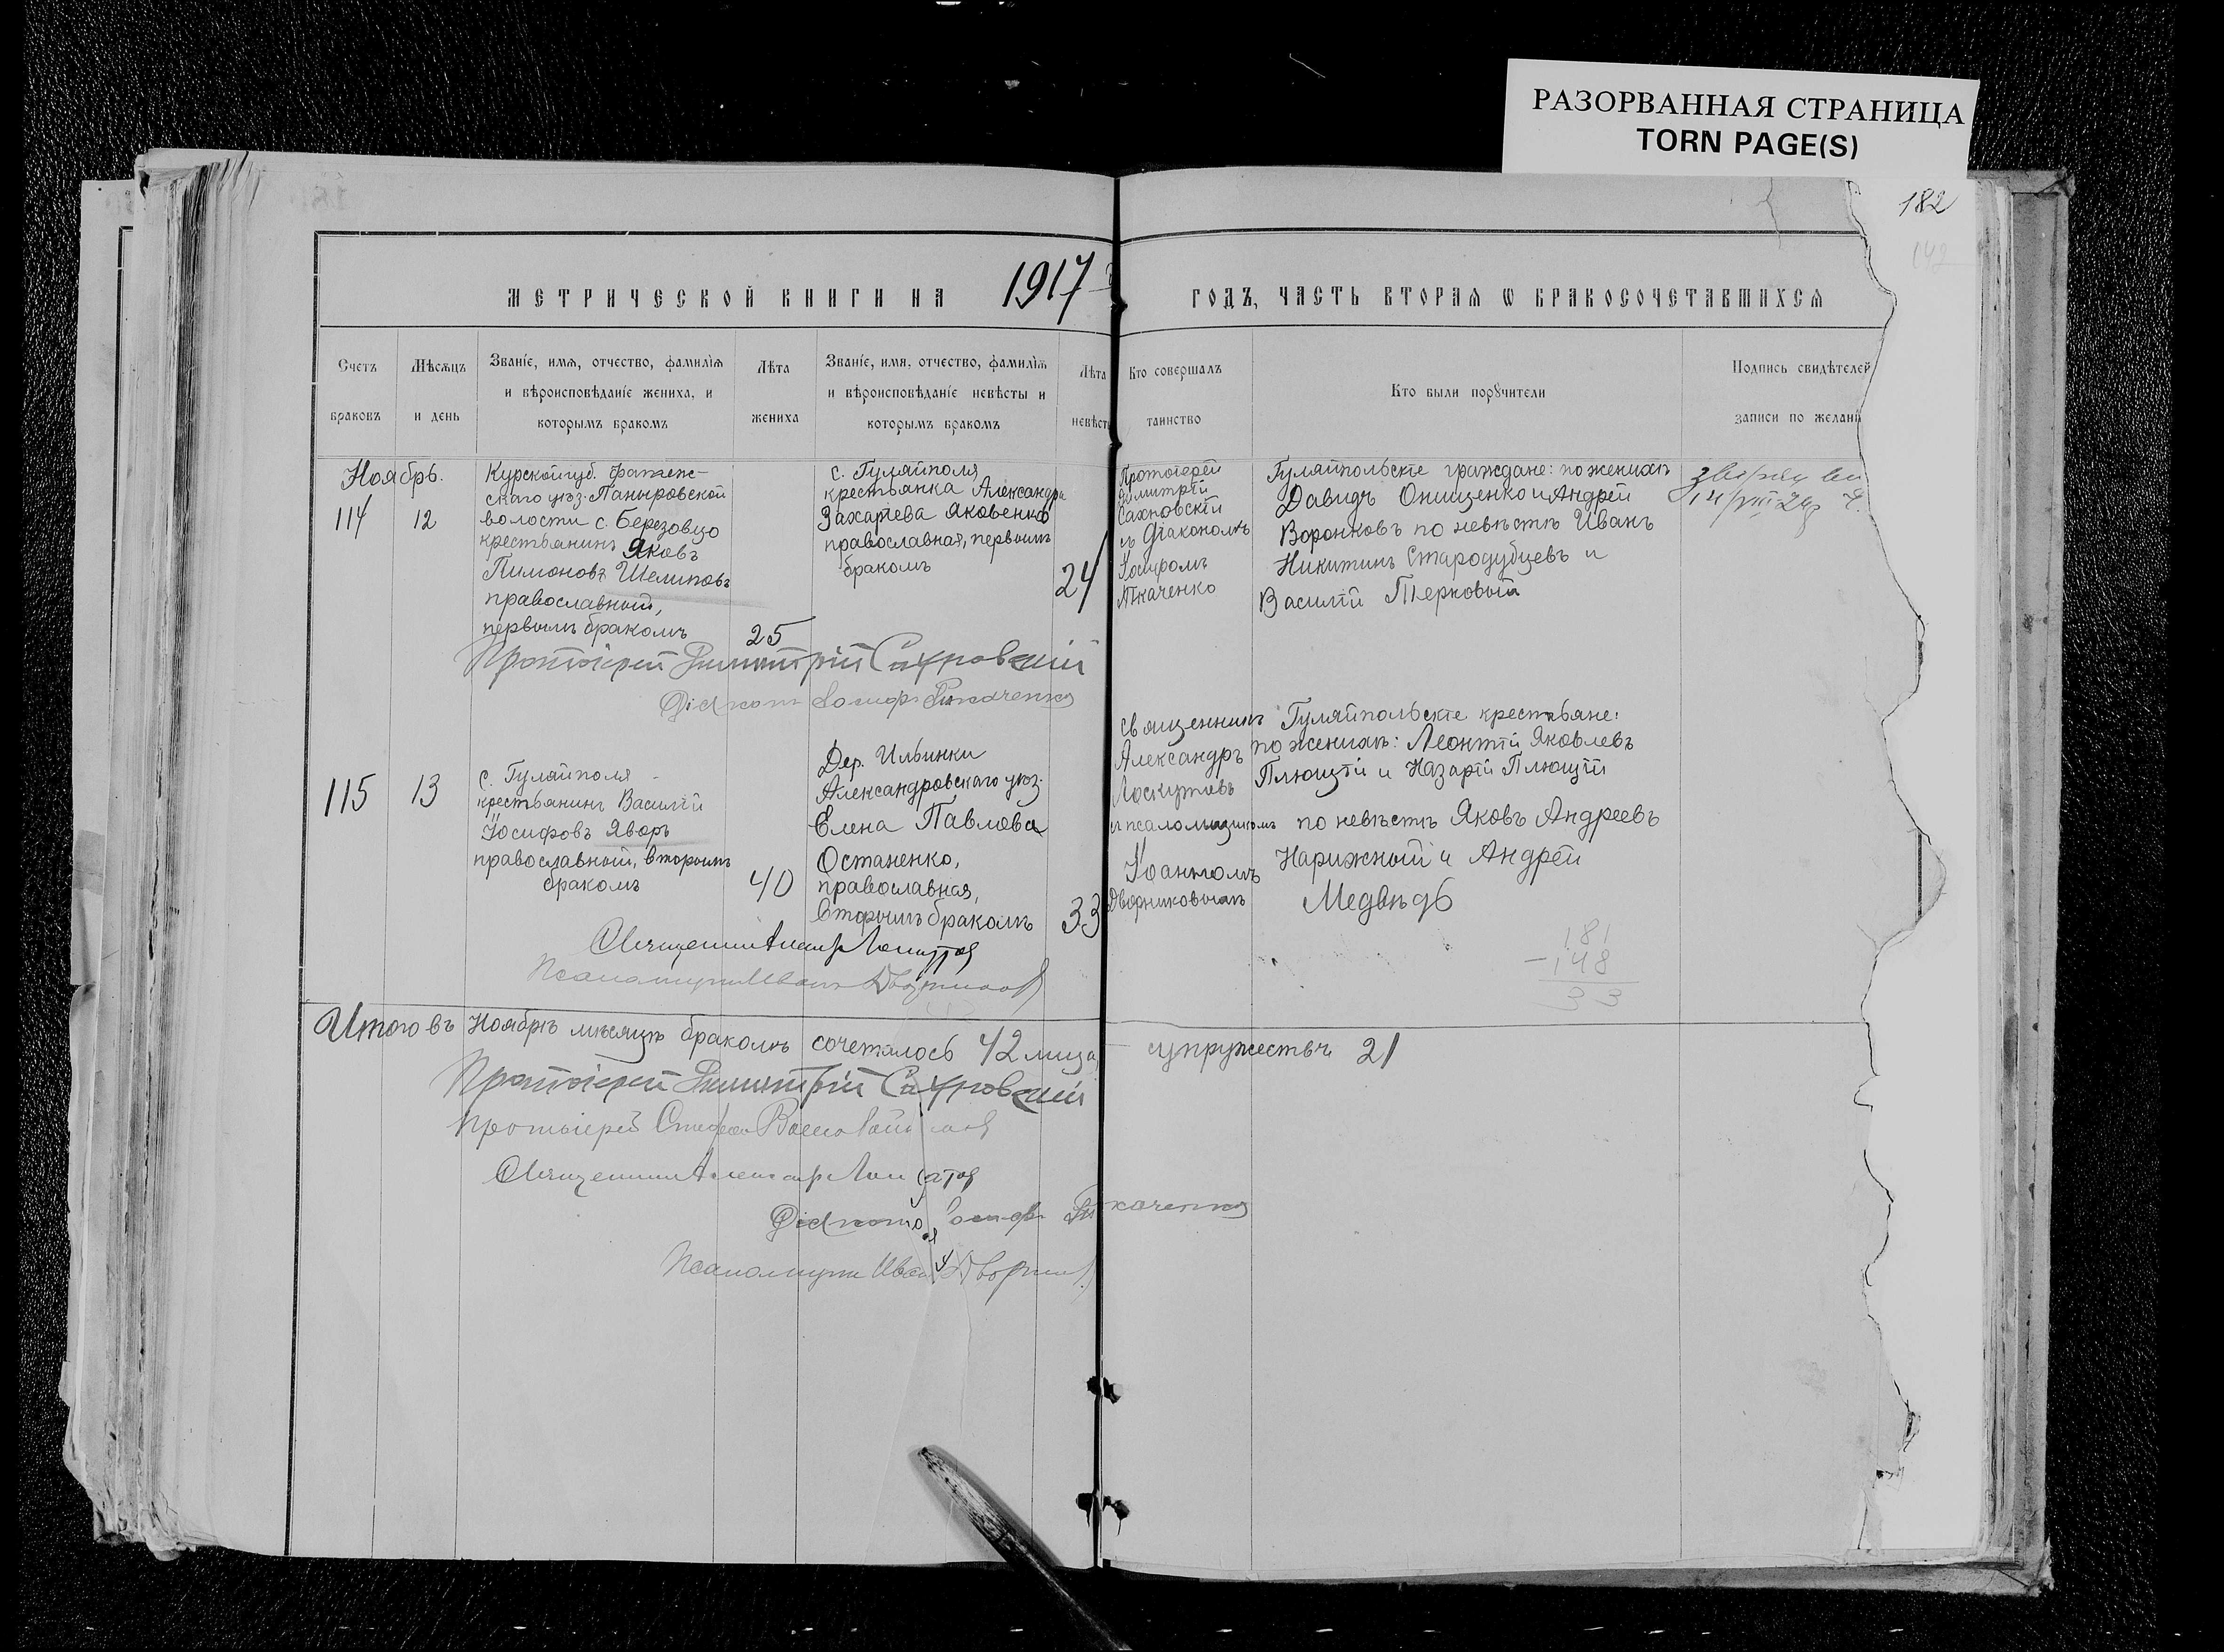 РАЗОРВАННАЯ СТРАНИЦА
TORN PAGE(S)
182
142
МЕТРИЧЕСКОЙ КНИГИ НА 1917 ГОДЪ, ЧАСТЬ ВТОРАЯ Ѡ БРАКОСОЧЕТАВШИХСЯ
Счетъ браковъ
Мѣсяцъ и день
Званіе, имя, отчество, фамилія
и вѣроисповѣданіе жениха, и
которымъ бракомъ
Лѣта
жениха
Званіе, имя, отчество, фамилія
и вѣроисповѣданіе невѣсты и
которымъ бракомъ
Лѣта
невѣст
Кто совершалъ
таинство
Кто были порꙋчители
Подпись свидѣтелей
записи по желані
Ноябрь.
114 12
Курской губ. Фатеж-
скаго уѣз. Паныровской
волости с. Березовцо
крестьянинъ Яковъ
Пимоновъ Шелиповъ
православный,
первымъ бракомъ
25
с. Гуляйполя
крестьянка Александра
Захаріева Яковенко
православная, первымъ
бракомъ
24
Протоіерей
Димитрій
Сахновскій
съ діакономъ
Іосифомъ
Ткаченко
Гуляйпольскіе граждане: по женихѣ
Давидъ Онищенко и Андрей
Воронковъ по невѣстѣ Иванъ
Никитинъ Стародубцевъ и
Василій Терковый
Протоіерей Димитрій Сахновскій
Діаконъ Іосифъ Ткаченко
115 13
с. Гуляйполя
крестьянинъ Василій
Іосифовъ Яворъ
православный, вторымъ
бракомъ
40
Дер. Ильинки
Александровскаго уѣз.
Елена Павлова
Останенко,
православная,
вторымъ бракомъ
33
Священникъ
Александръ
Лоскутовъ
съ псаломщикомъ
Іоанномъ
Дворниковымъ
Гуляйпольскіе крестьяне:
по женихѣ: Леонтій Яковлевъ
Плющій и Назарій Плющій
по невѣстѣ Яковъ Андреевъ
Нарижный и Андрей
Медвѣдь
181
-148
33
Священникъ Александръ Лоскутовъ
Псаломщикъ Иванъ Дворниковъ
Итого въ Ноябрѣ мѣсяцѣ бракомъ сочеталось 42 лица, супружествъ 21
Протоіерей Димитрій Сахновскій
Протоіерей Стефанъ
Священникъ Александръ Лоскутовъ
Діаконъ Іосифъ Ткаченко
Псаломщикъ Иванъ Дворниковъ